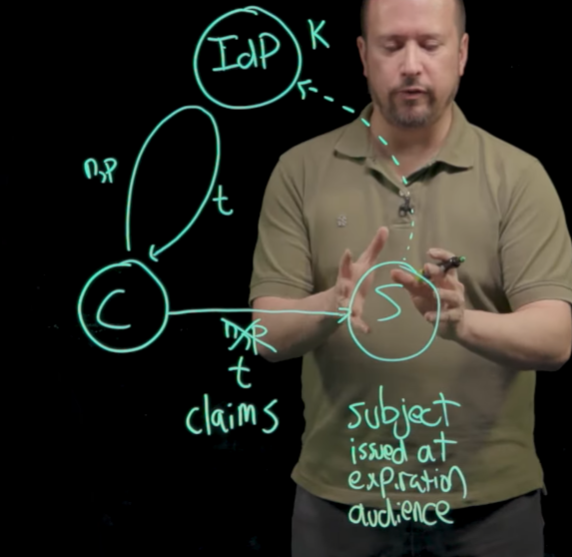 IdP
K
n,p
t
C
S
n,p
t
claims
subject
issued at
expiration
audience